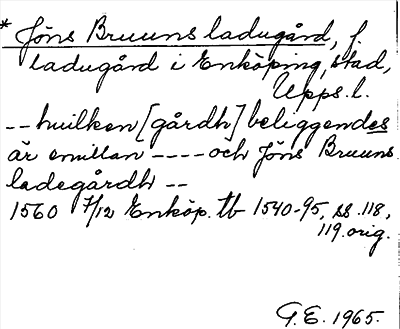 * Jöns Bruuns ladugård, f.
ladugård i Enköping, stad,
Upps. l.
-- huilken [gårdh] beliggendes
är emillan ---- och Jöns Bruuns
ladegårdh --
1560 7/12 Enköp. tb 1540-95, ss. 118,
119. orig.
G.E. 1965.